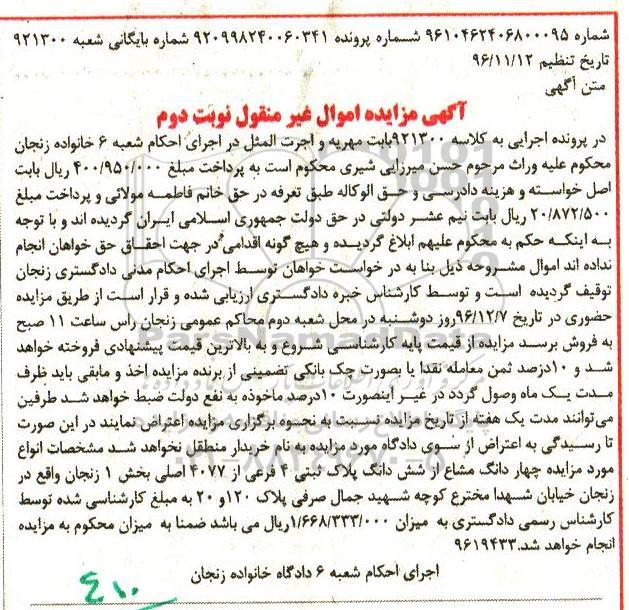 شماره ۹۶۱۰۴۶۲۴۰۶۸۰۰۰۹۵ شماره پرونده ۹۲۰۹۹۸۲۴۰۰۶۰۳۴۱ شماره بایگانی شعبه ۹۲۱۳۰۰
تاریخ تنظیم ۹۶/۱۱/۱۲
متن آگهی
آگهی مزایده اموال غیر منقول نوبت دوم
در پرونده اجرایی به کلاسه ۹۲۱۳۰۰بابت مهریه و اجرت المثل در اجرای احکام شعبه ۶ خانواده زنجان
محکوم علیه وراث مرحوم حسن میرزایی شیری محکوم است به پرداخت مبلغ ۴۰۰/۹۵۰/۰۰۰ ریال بابت
اصل خواسته و هزینه دادرسی و حق الوکاله طبق تعرفه در حق خانم فاطمه مولائی و پرداخت مبلغ
۲۰/۸۷۲/۵۰۰ ریال بابت نیم عشر دولتی در حق دولت جمهوری اسلامی ایران گردیده اند و با توجه
به اینکه حکم به محکوم علیهم ابلاغ گردیده و هیچ گونه اقدامی در جهت احقاق حق خواهان انجام
نداده اند اموال مشروحه ذیل بنا به در خواست خواهان توسط اجرای احکام مدنی دادگستری زنجان
توقیف گردیده است و توسط کارشناس خبره دادگستری ارزیابی شده و قرار است از طریق مزایده
حضوری در تاریخ ۹۶/۱۲/۷روز دوشنبه در محل شعبه دوم محاکم عمومی زنجان راس ساعت ۱۱ صبح
به فروش برسد مزایده از قیمت پایه کارشناسی شروع و به بالاترین قیمت پیشنهادی فروخته خواهد
شد و ۱۰درصد ثمن معامله نقدا یا بصورت چک بانکی تضمینی از برنده مزایده اخذ و مابقی باید ظرف
مدت یک ماه وصول گردد در غیر اینصورت ۱۰درصد ماخوذه به نفع دولت ضبط خواهد شد طرفین
می‌توانند مدت یک هفته از تاریخ مزایده نسبت به نحوه برگزاری مزایده اعتراض نمایند در این صورت
تا رسیدگی به اعتراض از سوی دادگاه مورد مزایده به نام خریدار منطقل نخواهد شد مشخصات انواع
مورد مزایده چهار دانگ مشاع از شش دانگ پلاک ثبتی ۴ فرعی از ۴۰۷۷ اصلی بخش ۱ زنجان واقع در
زنجان خیابان شهدا مخترع کوچه شهید جمال صرفی پلاک ۱۲۰و ۲۰ به مبلغ کارشناسی شده توسط
کارشناس رسمی دادگستری به میزان ۱/۶۶۸/۳۳۳/۰۰۰ریال می باشد ضمنا به میزان محکوم به مزایده
انجام خواهد شد.۹۶۱۹۴۳۳
اجرای احکام شعبه ۶ دادگاه خانواده زنجان
ParsNamadData